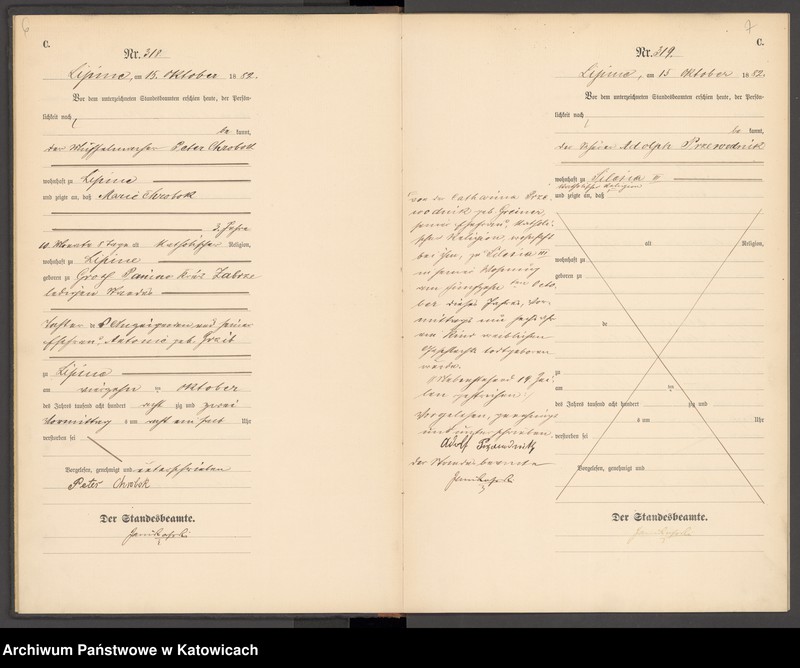 6
C.
Nr. 318
Lipine, am 15. Oktober 1882.
Vor dem unterzeichneten Standesbeamten erschien heute, der Persön-
lichkeit nach
be kannt,
der Peter Chrobok
wohnhaft zu Lipine
und zeigte an, daß Marie Chrobok
3 Jahre
10 Monate Tage alt katholischer Religion,
wohnhaft zu Lipine
geboren zu Groß Paniow Kreis Zabrze
ledigen Standes
Tochter des Anzeigenden und seiner
Ehefrau Antonie geb.
zu Lipine
am vierzehn ten Oktober
des Jahres tausend acht hundert acht zig und zwei
Vormittag s um acht ein halb Uhr
verstorben sei
Vorgelesen, genehmigt und unterschrieben
Peter Chrobok
Der Standesbeamte.
7
C.
Nr. 319
Lipine, am 15 Oktober 1882.
Vor dem unterzeichneten Standesbeamten erschien heute, der Persön-
lichkeit nach
be kannt,
der Adolph Przewodnik
wohnhaft zu Silesia
katholischer Religion
und zeigte an, daß
von der Catharina Prze
wodnik geb. Greiner
seiner Ehefrau katholi-
scher Religion, wohnhaft
bei ihm, zu Silesia III
in seiner Wohnung
am fünfzehn ten Octo
ber dieses Jahres, Vor-
mittags um sechs Uhr
ein Kind weiblichen
Geschlechts todtgeboren
worden.
Nebenstehend 14 Zei-
len gestrichen
Vorgelesen, genehmigt
und unterschrieben
Adolf Przewodnik
der Standesbeamte
alt Religion,
wohnhaft zu
geboren zu
de
zu
am ten
des Jahres tausend acht hundert zig und
s um Uhr
verstorben sei
Vorgelesen, genehmigt und
Der Standesbeamte.
Archiwum Państwowe w Katowicach